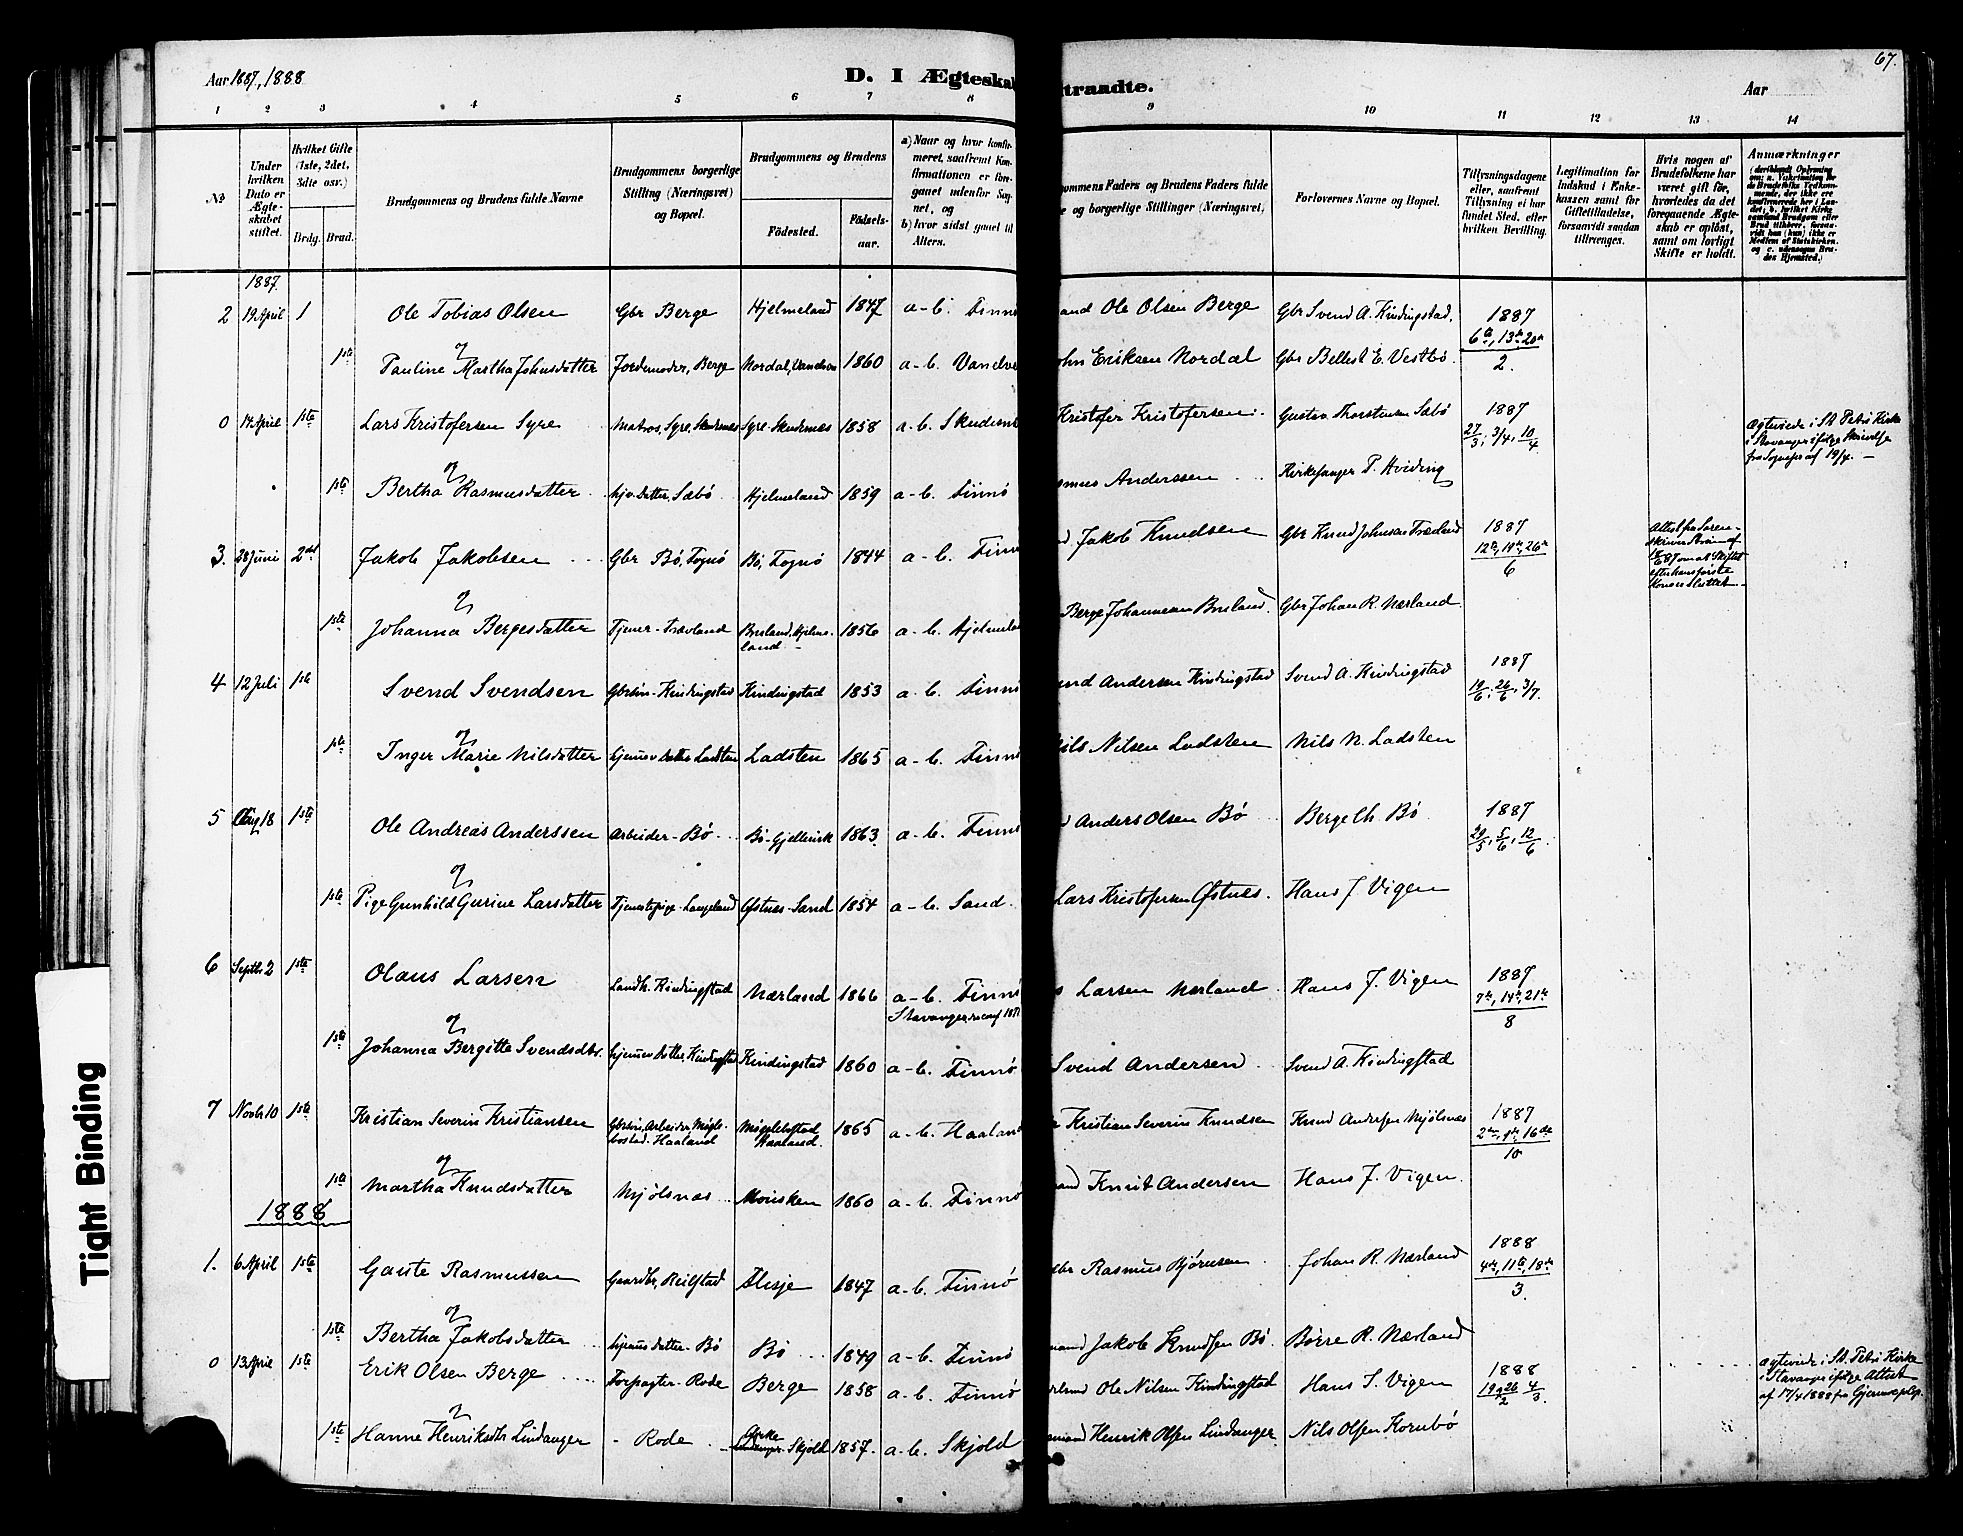 67.
Aar 1887, 1888
D. I Ægteskab
traadte.
Aar
1 2 3 4 5 6 7 8 9 10 11 12 13 14
No
Under hvilken Dato er Ægteskabet stiftet.
Hvilket Gifte (1ste, 2det, 3die osv.)
Brdg. Brud.
Brudgommens og Brudens fulde Navne
Brudgommens borgerlige Stilling (Næringsvei) og Bopæl.
Brudgommens og Brudens
Födested.
Födselsaar.
a) Naar og hvor konfirmeret, saafremt Konfirmationen er foregaaet udenfor Sognet, og
b) hvor sidst gaaet til Alters.
ommens Faders og Brudens Faders fulde
e og borgerlige Stillinger (Næringsvei)
Forlovernes Navne og Bopæl.
Tillysningsdagene eller, saafremt Tillysning ei har fundet Sted, efter hvilken Bevilling.
Legitimation for Indskud i Enkekassen samt for Giftetilladelse, forsaavidt saadan tiltrænges.
Hvis nogen af Brudefolkene har været gift för, hvorledes da det foregaaende Ægteskab er oplöst, samt om lovligt Skifte er holdt.
Anmærkninger
1887.
2 19 April 1 Ole Tobias Olsen Gbr Berge Hjelmeland 1847 a-b. Finnö
and Ole Olsen Berge Gbr Svend A. Kindingstad. 1887 6te, 13de 20de
og
1ste Pauline Martha Johnsdatter Jordemoder, Berge Nordal, Vandsø 1860 a-b. Vandve
ohn Eriksen Nordal Gbr Bellest E. Vestbö. 2.
0 14 April 1ste Lars Kristofersen Syre Matros, Syre, Skudenes Syre Skudenes 1858 a-b. Skudesn
Kristofer Kristofersen. Gustav Thorstensen Sæbö 1887 27/3, 3/4, 10/4
Ægteviede i St. Petri Kirke i Stavanger ifølge Skrivelse fra Sognepr af 19/4. —
og
1ste Bertha Rasmusdatter hjv. Datter, Sæbö Hjelmeland 1859 a-b. Finnö
smus Anderssen Kirkesanger P. Hviding
3. 28 Juni 2det Jakob Jakobsen Gbr Bö, Fognö Bö, Fognö 1844 a-b. Finn
d Jakob Knudsen Gbr Knud Johnsen Træland 1887 12te, 19de, 26de 6
og
1ste Johanna Bergesdatter Tjener-Trævland Busland, Hjelmeland 1856 a-b. Hjelmela
Berge Johannesen Busland. Gbr Johan R. Nærland
4 12 Juli 1ste Svend Svendsen Gbrsön-Kindingstad Kindingstad 1853 a-b. Finnö
end Andersen Kindingstad Svend A. Kindingstad 1887 19/6, 26/6, 3/7.
og
1ste Inger Marie Nilsdatter hjemmev Datter Ladsten Ladsten 1865 a-b. Finnö
Nils Nilsen Ladsten Nils N. Ladsten
5 Aug 18 1ste Ole Andreas Anderssen Arbeider-Bö Bö-Gjellevik 1863. a-b. Finnö
Anders Olsen Bö Berge Ch. Bö 1887 29/5, 5/6, 12/6
og
1ste Pige Gunhild Gurine Larsdatter Tjenestepige-Langeland Østnes-Sand 1854 a-b. Sand.
Lars Kristofersen Østnes. Hans J Vigen
6 Septbr 2 1ste Olaus Larsen Landh. Kindingstad Nærland 1866 a-b. Finnö
Larsen Nærland Hans J. Vigen 1887 7de, 14de, 21de 8
og
1ste Johanna Bergitte Svendsdtr. hjemmev Datter, Kindingstad Kindingstad 1860 a-b. Finnö
Svend Andersen Svend A. Kindingstad
7 Novb 10 1ste Kristian Severin Kristiansen Gbrsön, Arbeider, Haaland Haaland. 1865 a-b. Haalan
Kristian Severin Knudsen Knud Andersen Mjölsnæs 1887 2den, 9de, 16de 10
og
1ste Martha Knudsdatter Mjölsnæs Moisken 1860 a-b. Finnö
and Knut Andersen Hans J. Vigen.
1888
1. 6 April 1ste Gaute Rasmussen Gaardbr, Reilstad Flesje 1847 a-b. Finnö
br Rasmus Bjørnsen Johan R. Nærland 1888 4de, 11te, 18de 3.
og
1ste Bertha Jakobsdatter hjemv Datter-Bö Bö 1849 a-b. Finnö
mand Jakob Knudsen Bö. Börre R. Nærland
0 13 April 1ste Erik Olsen Berge Forpagter-Rode Berge 1858 a-b. Finnö
Ole Nilsen Kindingstad Hans J. Vigen 1888 19 26/2 4/3.
Ægteviede i St. Petri Kirke i Stavanger ifølge Attest af 17/4 1888 fra
og
1ste Hanne Henriksdtr Lindanger - Rode Skjold 1857. a-b. Skjold
mand Henrik Olsen Lindanger Nils Olsen Kornbö
Tight Binding